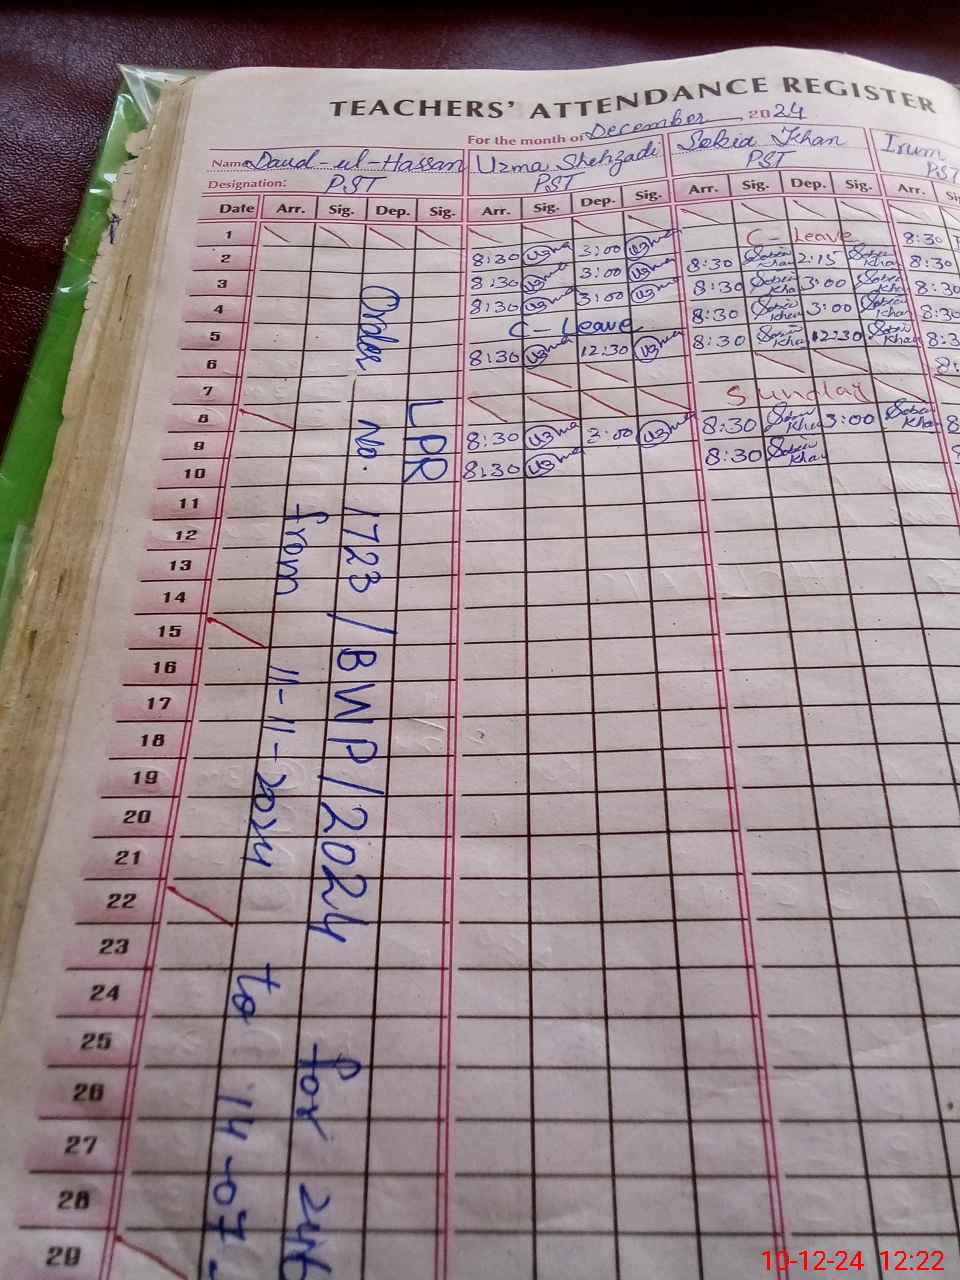 TEACHERS' ATTENDANCE REGISTER
For the month of December 2024
Name Daud-ul-Hassan Uzma Shehzadi Sobia Khan Irum
Designation: PST PST PST PST
Date Arr. Sig. Dep. Sig. Arr. Sig. Dep. Sig. Arr. Sig. Dep. Sig. Arr.
1
2 8:30 Uzma 3:00 Uzma C-Leave 8:30
3 8:30 Uzma 3:00 Uzma 8:30 Sobia Khan 2:15 Sobia Khan 8:30
4 8:30 Uzma 3:00 Uzma 8:30 Sobia Khan 3:00 Sobia Kha 8:30
5 C-Leave 8:30 Sobia Khan 3:00 Sobia Khan 8:30
6 8:30 Uzma 12:30 Uzma 8:30 Sobia Khan 12:30 Sobia Khan 8:3
7 8:
8 Sunday
9 8:30 Uzma 3:00 Uzma 8:30 Sobia Khan 3:00 Sobia Khan 8
10 8:30 Uzma 8:30 Sobia Khan 8
11
12
13
14
15
16
17
18
19
20
21
22
23
24
25
26
27
28
29
LPR
Order No. 1723/BWP/2024 for 246
from 11-11-2024 to 14-07-
10-12-24 12:22